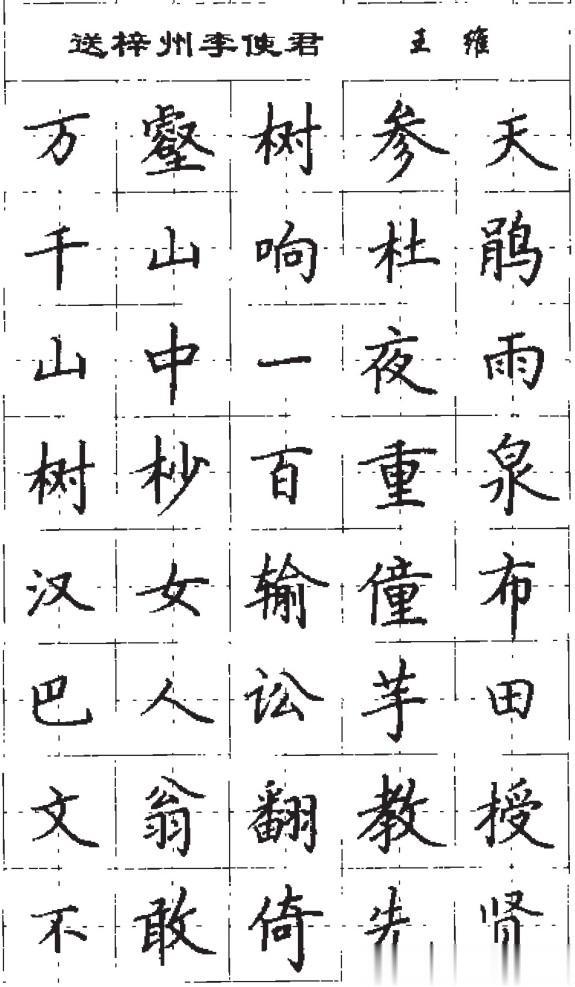 送梓州李使君 王维
万壑树参天
千山响杜鹃
山中一夜雨
树杪百重泉
汉女输僮布
巴人讼芋田
文翁翻教授
不敢倚先贤